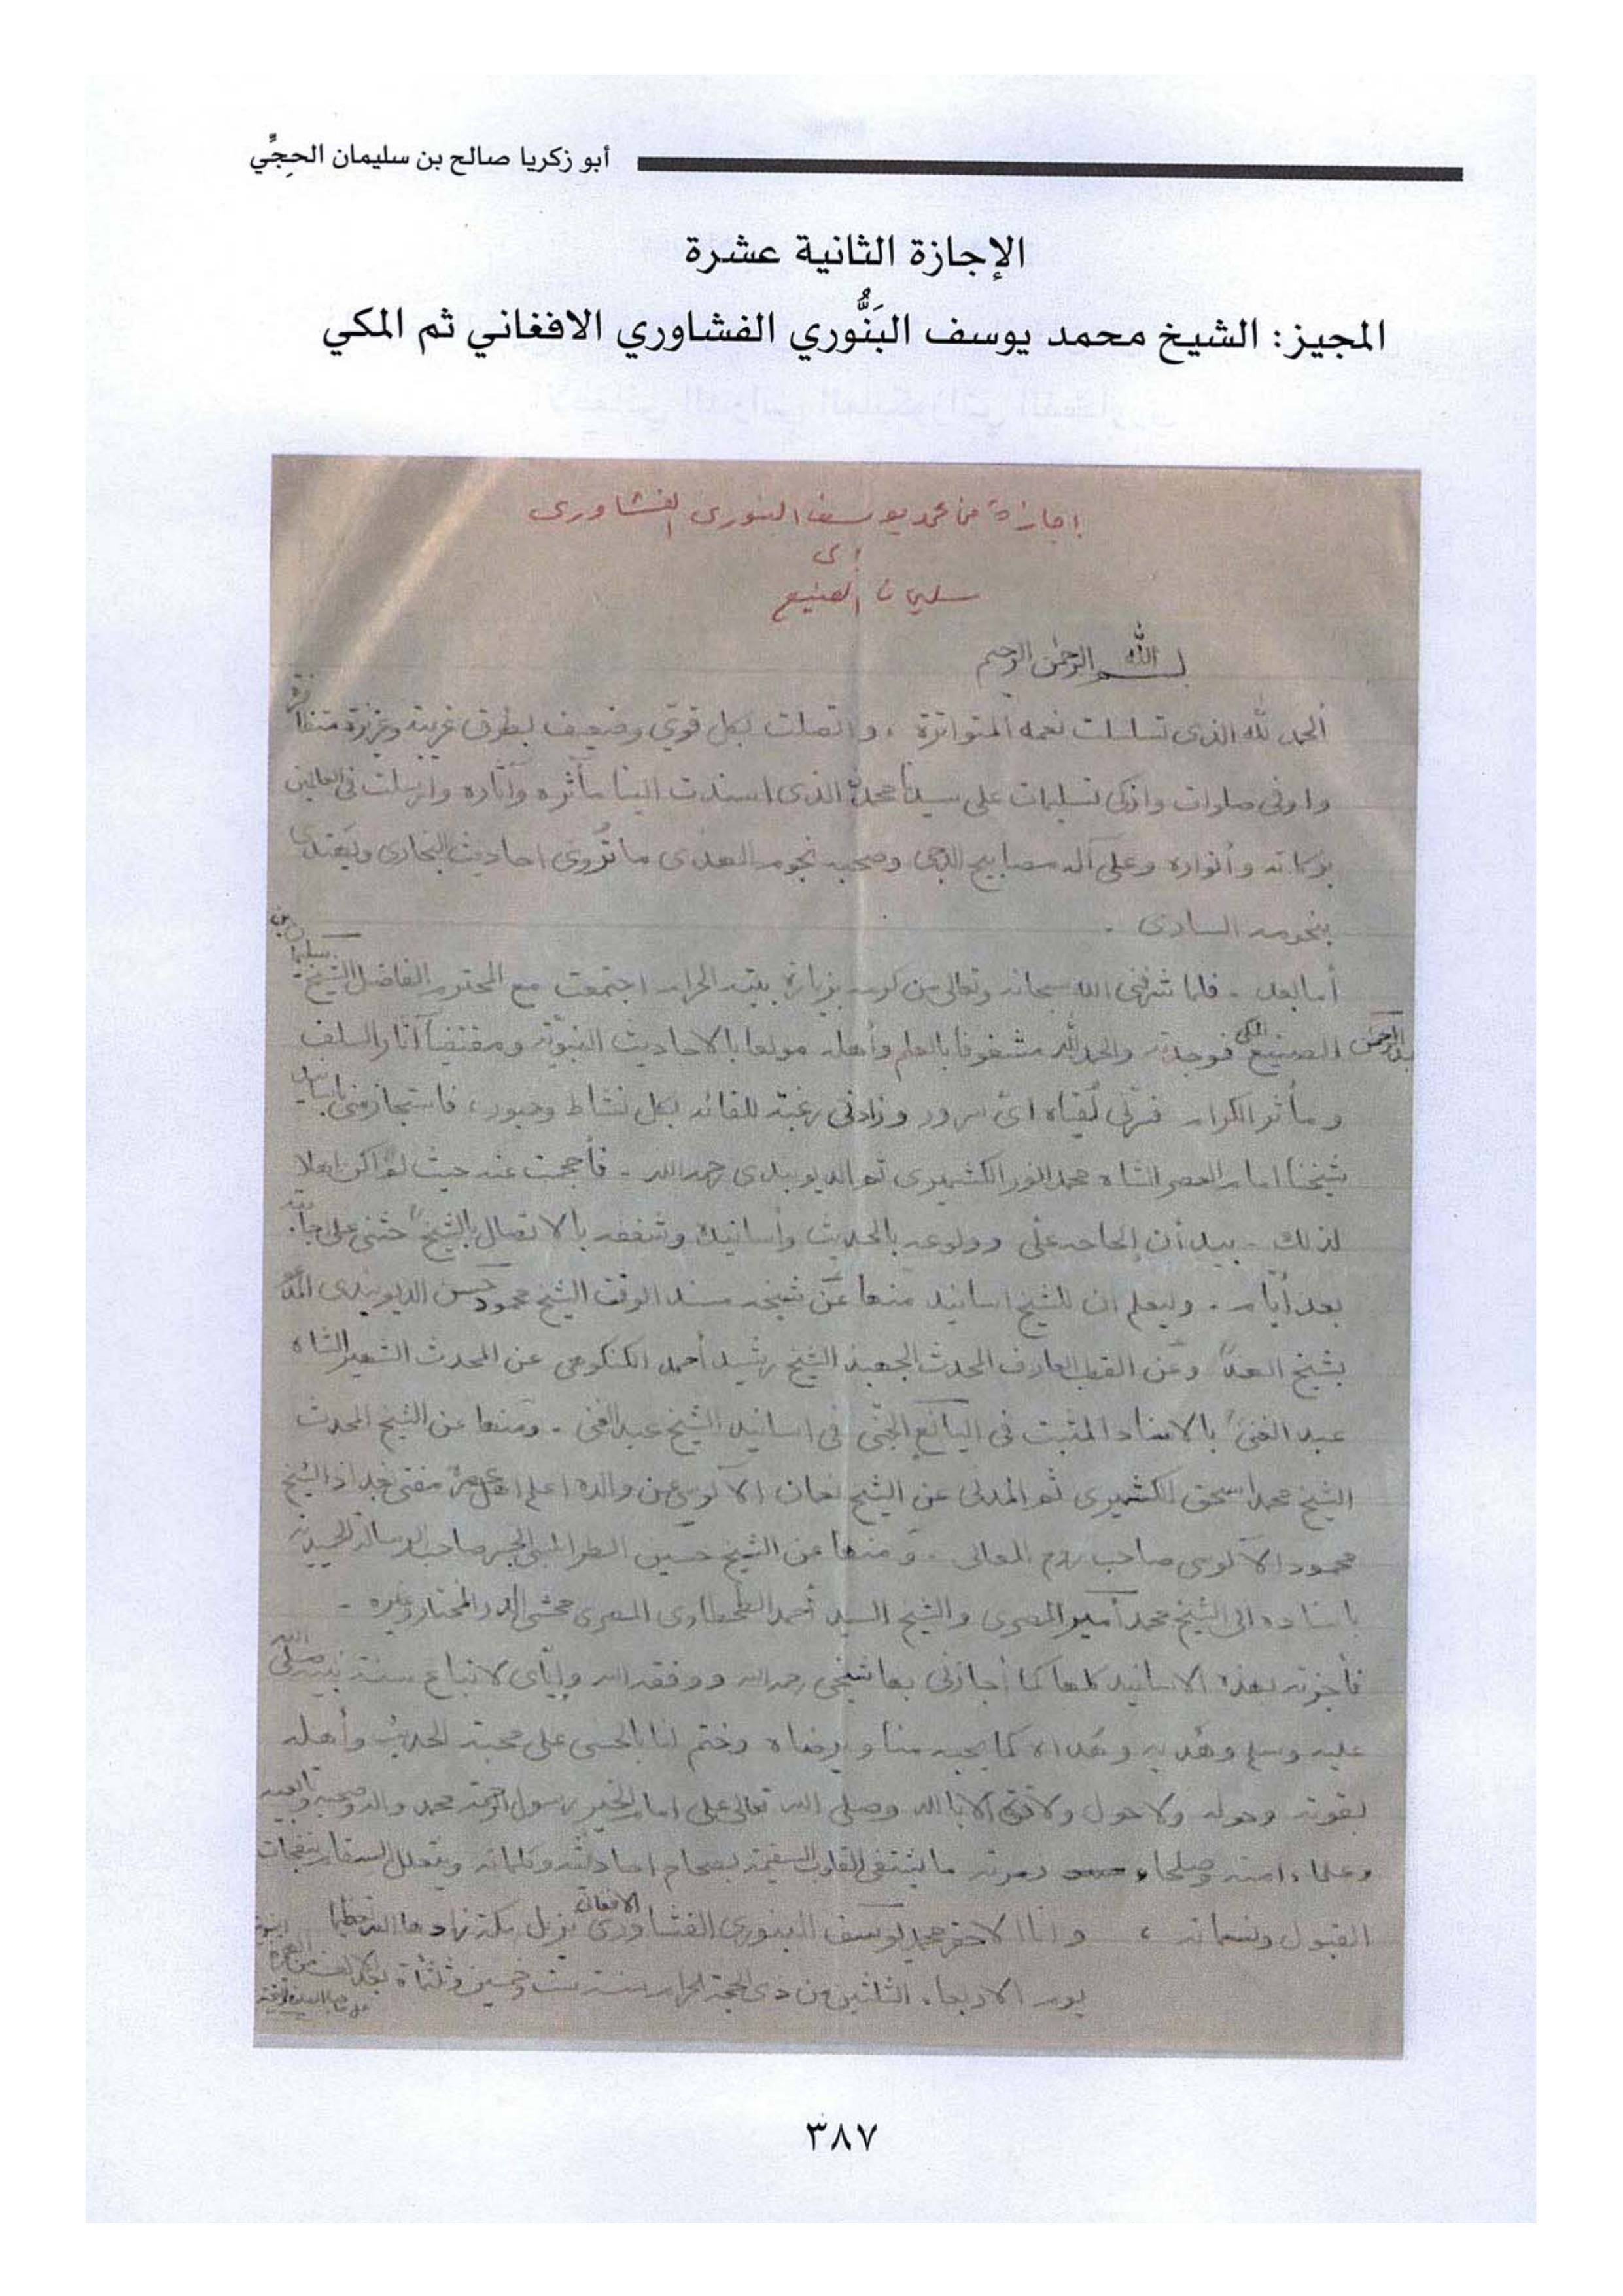 أبو زكريا صالح بن سليمان الحِجِّي
الإجازة الثانية عشرة
المجيز: الشيخ محمد يوسف البَنُّوري الفشاوري الافغاني ثم المكي
اجازة من محمد يوسف البنوري الفشاوري
الى
سليمان الصنيع
بسم الله الرحمن الرحيم
ألحمد لله الذى تسلسلت نعمه المتواترة ، واتصلت بكل قوي وضعيف بطرق غريبة وعزيزة متظافرة
واوفى صلوات وازكى تسليمات على سيدنا محمد الذى اسندت الينا مآثره وآثاره وارسلت فى العالمين
بركاته وأنواره وعلى آله مصابيح الدجى وصحبه نجوم الهدى ما تُروى احاديث البخارى ويقتدى
بنجومه السارى .
أما بعد . فلما شرفنى الله سبحانه وتعالى من كرمه بزيارة بيته الحرام اجتمعت مع المحترم الفاضل الشيخ سليمان بن
عبد الرحمن الصنيع المكى فوجدته والحمد لله مشغوفا بالعلم وأهله مولعا بالاحاديث النبوية ومقتفيا آثار السلف
ومآثر الكرام فسرّنى لُقياه اىّ سرور وزادنى رغبة للقائه بكل نشاط وحبور، فاستجاز منى باسانيد
شيخنا امام العصر الشاه محمد انور الكشميرى ثم الديوبندى رحمه الله . فأحجمت عنه حيث لم اكن اهلا
لذلك . بيد أن إلحاحه علىّ وولوعه بالحديث وأسانيده وشغفه بالاتصال بالشيخ حثنى على اجابته
بعد أيام . وليعلم ان للشيخ اسانيد منها عن شيخه مسند الوقت الشيخ محمود حسن الديوبندى
بشيخ الهند وعن القطب العارف المحدث الجهبذ الشيخ رشيد أحمد الكنكوهى عن المحدث الشهير الشاه
عبد الغنى بالاسناد المثبت فى اليانع الجنى فى اسانيد الشيخ عبد الغنى . ومنها عن الشيخ المحدث
الشيخ محمد اسحق الكشميرى ثم المدنى عن الشيخ نعمان الآلوسى عن والده اعلم اهل عصره مفتى بغداد الشيخ
محمود الآلوسى صاحب روح المعانى . ومنها عن الشيخ حسين الطرابلسى الجسر صاحب الرسالة الحميدية
باسناده الى الشيخ محمد أمير المصرى والشيخ السيد أحمد الطحطاوى المصرى محشى الدر المختار وغيره .
فأجزته بهذه الاسانيد كلها كما أجازنى بها شيخى رحمه الله ووفقه الله وإيّاى لاتباع سنة نبيه صلى الله
عليه وسلم وهَديه وهُداه كما يحبه منا ويرضاه وختم لنا بالحسنى على محبة الحديث وأهله
بقوته وحوله ولا حول ولا قوة الا بالله وصلى الله تعالى على امام الخير رسول الرحمة محمد واله وصحبه وتابعيه
وعلماء امته وصلحاء ما يشتفى القلوب السقيمة بصحاح احاديثه وكلماته ويتعلل السقام بنفحات
القبول ونسماته ، وانا الاحقر محمد يوسف البنورى الفشاورى الافغانى نزيل مكة زادها الله تعظيما
يوم الاربعاء الثلثين من ذى الحجة الحرام سنة ست وخمسين وثلثمائة بعد الالف من الهجرة النبوية
٣٨٧